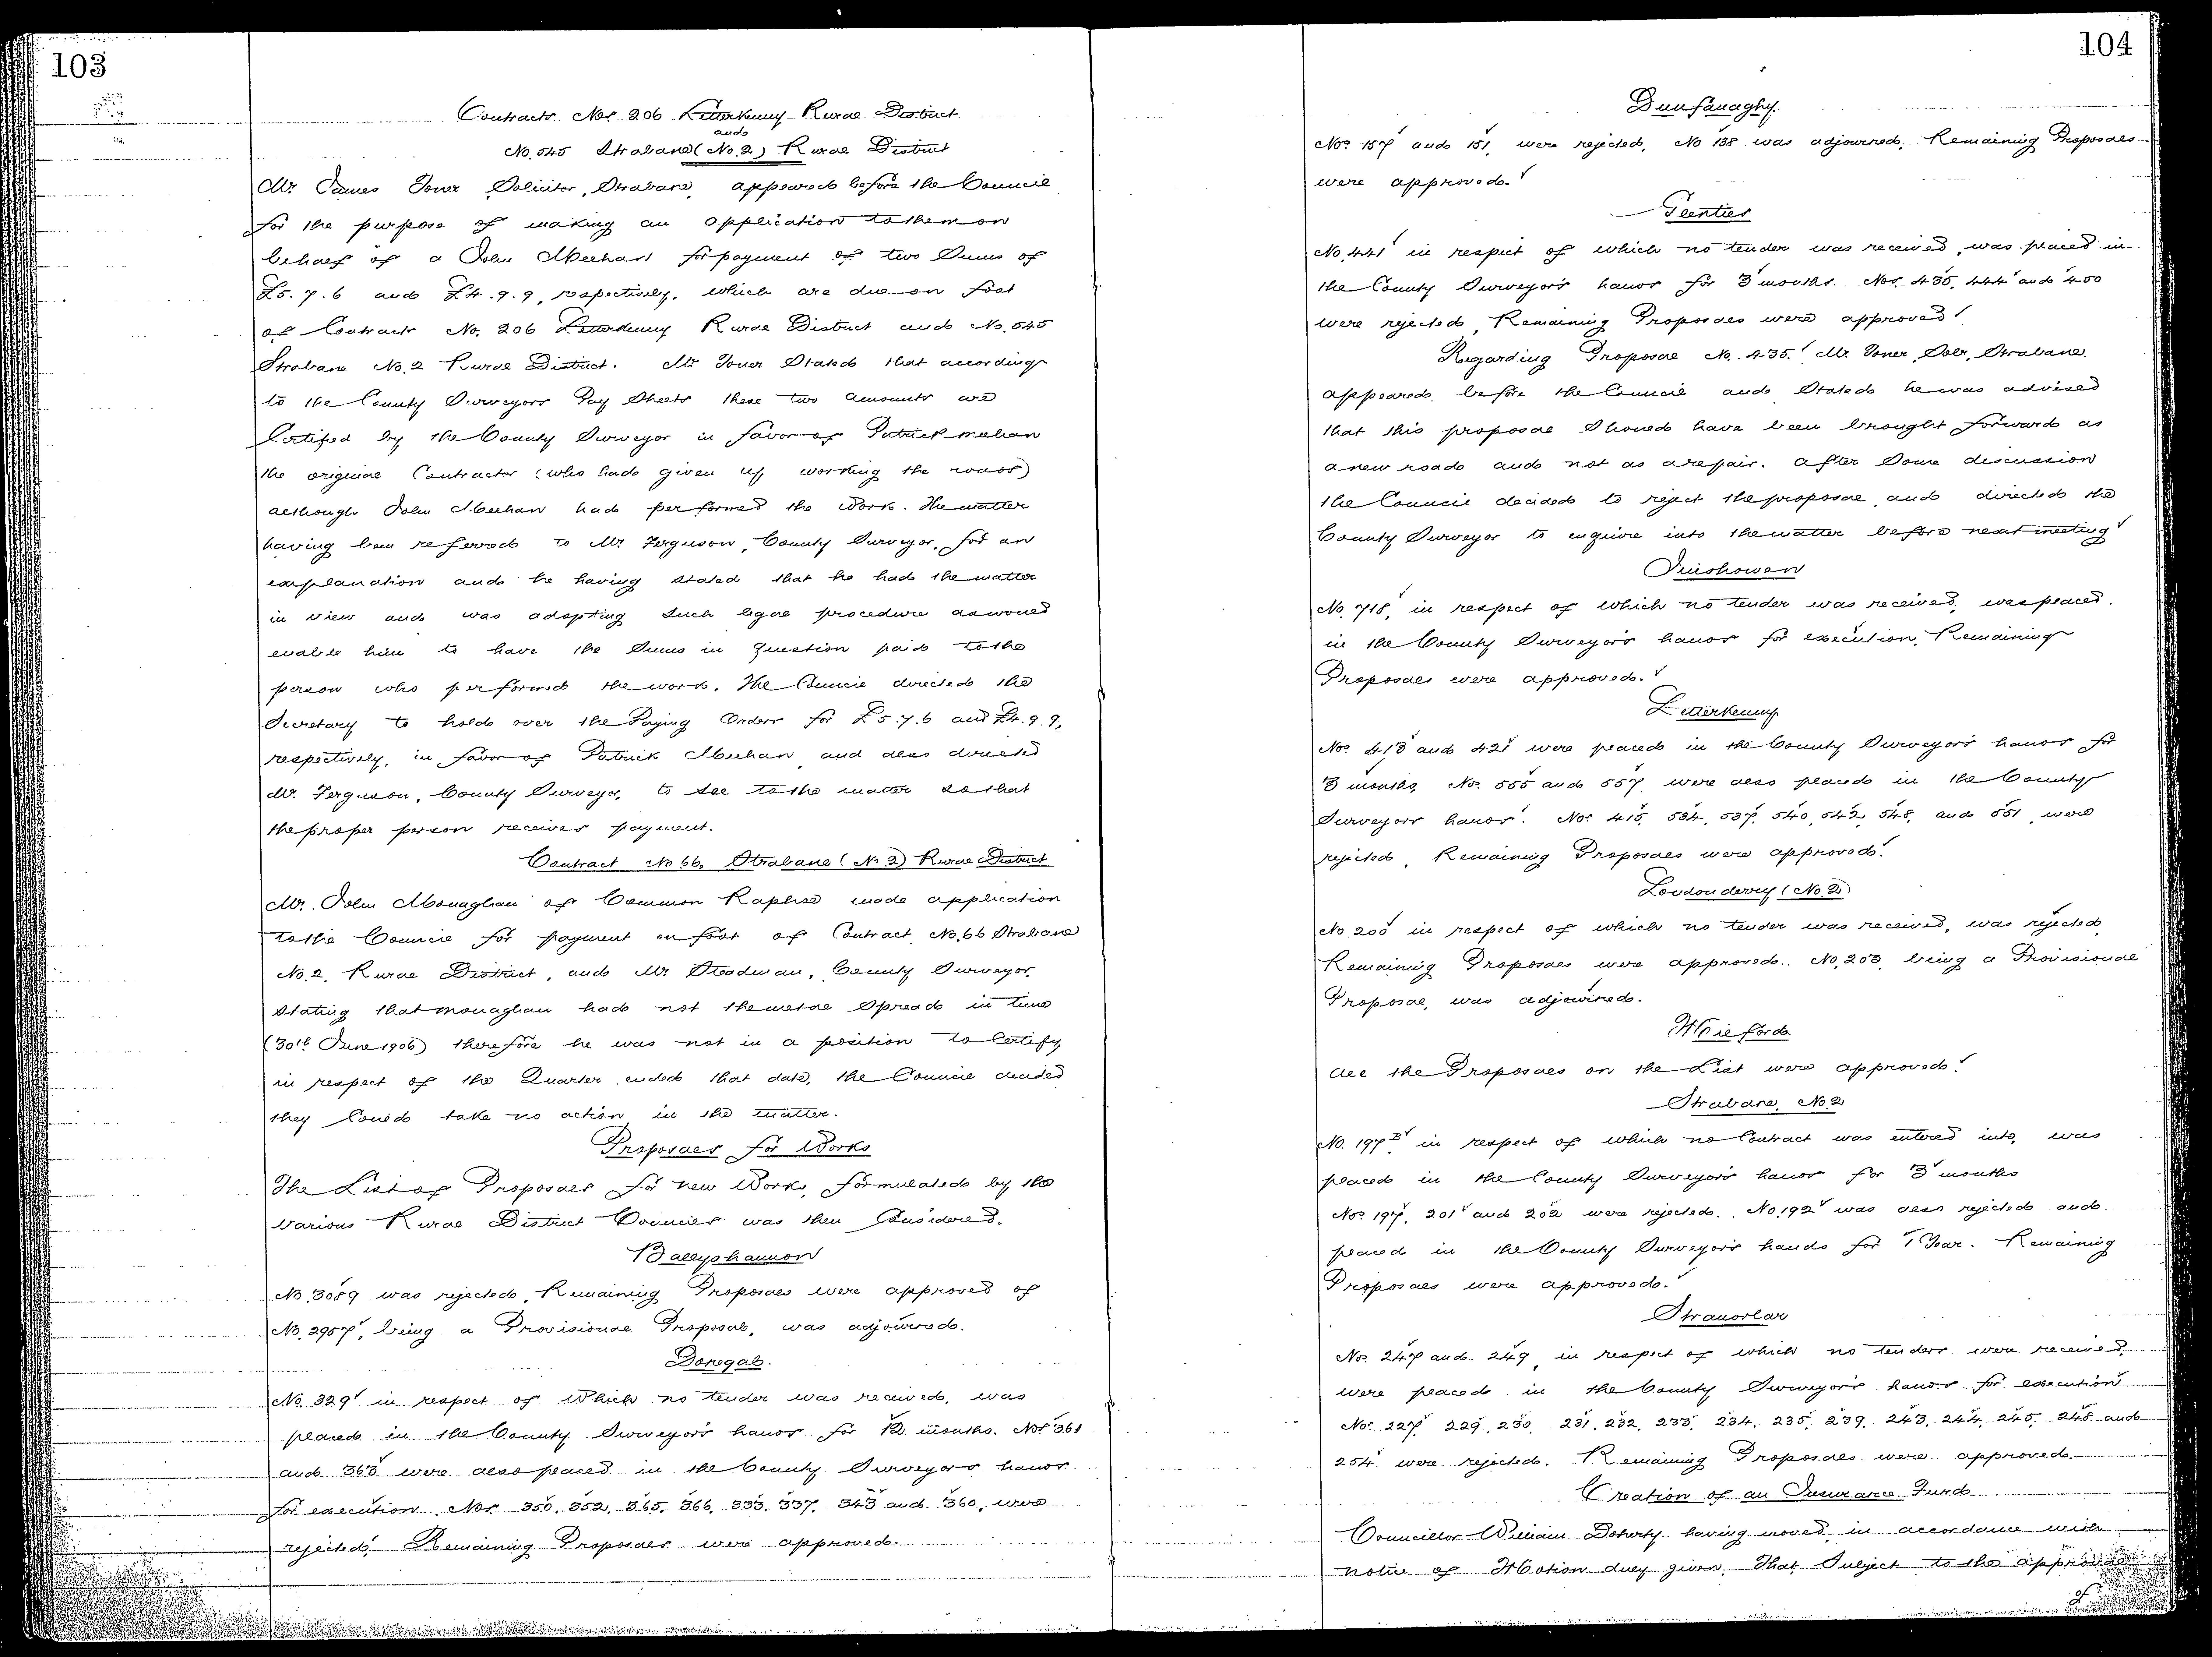 103
Contracts Nos 206 Letterkenny Rural District
and
No. 545 Strabane (No. 2) Rural District
Mr James Toner Solicitor, Strabane, appeared before the Council
for the purpose of making an application to them on
behalf of a John Meehan for payment of two Sums of
£5.7.6 and £4.9.9, respectively, which are due on foot
of Contracts No. 206 Letterkenny Rural District and No. 545
Strabane No. 2 Rural District. Mr Toner Stated that according
to the County Surveyors Pay Sheets these two amounts are
Certified by the County Surveyor in favor of Patrick meehan
the original Contractor (who had given up working the roads)
although John Meehan had performed the work. The matter
having been referred to Mr Ferguson, County Surveyor, for an
explanation and he having stated that he had the matter
in view and was adopting such legal procedure as would
enable him to have the Sums in question paid to the
person who performed the work. The Council directed the
Secretary to hold over the Paying Orders for £5.7.6 and £4.9.9,
respectively, in favor of Patrick Meehan and also directed
Mr. Ferguson, County Surveyor, to see to the matter so that
the proper person receives payment.
Contract No 66, Strabane (No 2) Rural District
Mr. John Monaghan of Common Raphoe made application
to the Council for payment on foot of Contract No. 66 Strabane
No. 2, Rural District, and Mr Steadman, County Surveyor,
stating that monaghan had not the metal Spread in time
(30th June 1906) therefore he was not in a position to Certify
in respect of the Quarter ended that date, the Council decided
they Could take no action in the matter.
Proposals for Works
The List of Proposals for new Works, formulated by the
various Rural District Councils was then Considered.
Ballyshannon
No. 3089 was rejected, Remaining Proposals were approved of
No. 2957, being a Provisional Proposal, was adjourned.
Donegal.
No. 329 in respect of Which no tender was received, was
placed in the County Surveyor's hands for 12 months. Nos 361
and 363 were also placed in the County Surveyors hands
for execution. Nos. 350, 352, 365, 366, 333, 337, 343 and 360, were
rejected. Remaining Proposals were approved.
104
Dunfanaghy.
Nos 157 and 151, were rejected, No 138 was adjourned, Remaining Proposals
were approved.
Glenties
No. 441 in respect of which no tender was received, was placed in
the County Surveyor's hands for 3 months. Nos. 435, 444 and 450
were rejected, Remaining Proposals were approved.
Regarding Proposal No. 435. Mr Toner, Solr, Strabane.
appeared before the Council and Stated he was advised
that this proposal Should have been brought forward as
a new road and not as a repair. After Some discussion
the Council decided to reject the proposal and directed the
County Surveyor to enquire into the matter before next meeting
Inishowen
No. 718, in respect of which no tender was received, was placed.
in the County Surveyor's hands for execution, Remaining
Proposals were approved.
Letterkenny
Nos. 413 and 421 were placed in the County Surveyor's hands for
3 months, Nos. 555 and 557 were also placed in the County
Surveyors hands. Nos 415, 534, 537, 540, 542, 548, and 551, were
rejected, Remaining Proposals were approved.
Londonderry (No. 2)
No. 200 in respect of which no tender was received, was rejected
Remaining Proposals were approved. No. 203, being a Provisional
Proposal, was adjourned.
Milford
All the Proposals on the List were approved.
Strabane, No. 2
No. 197B in respect of which no Contract was entered into, was
placed in the County Surveyor's hands for 3 months
Nos. 197, 201 and 202 were rejected. No. 192 was also rejected and
placed in the County Surveyor's hands for 1 Year. Remaining
Proposals were approved.
Stranorlar
Nos. 247 and 249, in respect of which no tenders were received
were placed in the County Surveyor's hands for execution
Nos. 227, 229, 230, 231, 232, 233, 234, 235, 239, 243, 244, 245, 248 and
254 were rejected. Remaining Proposals were approved
Creation of an Insurance Fund
Councillor William Doherty having moved in accordance with
notice of Motion duly given, That Subject to the approval
of